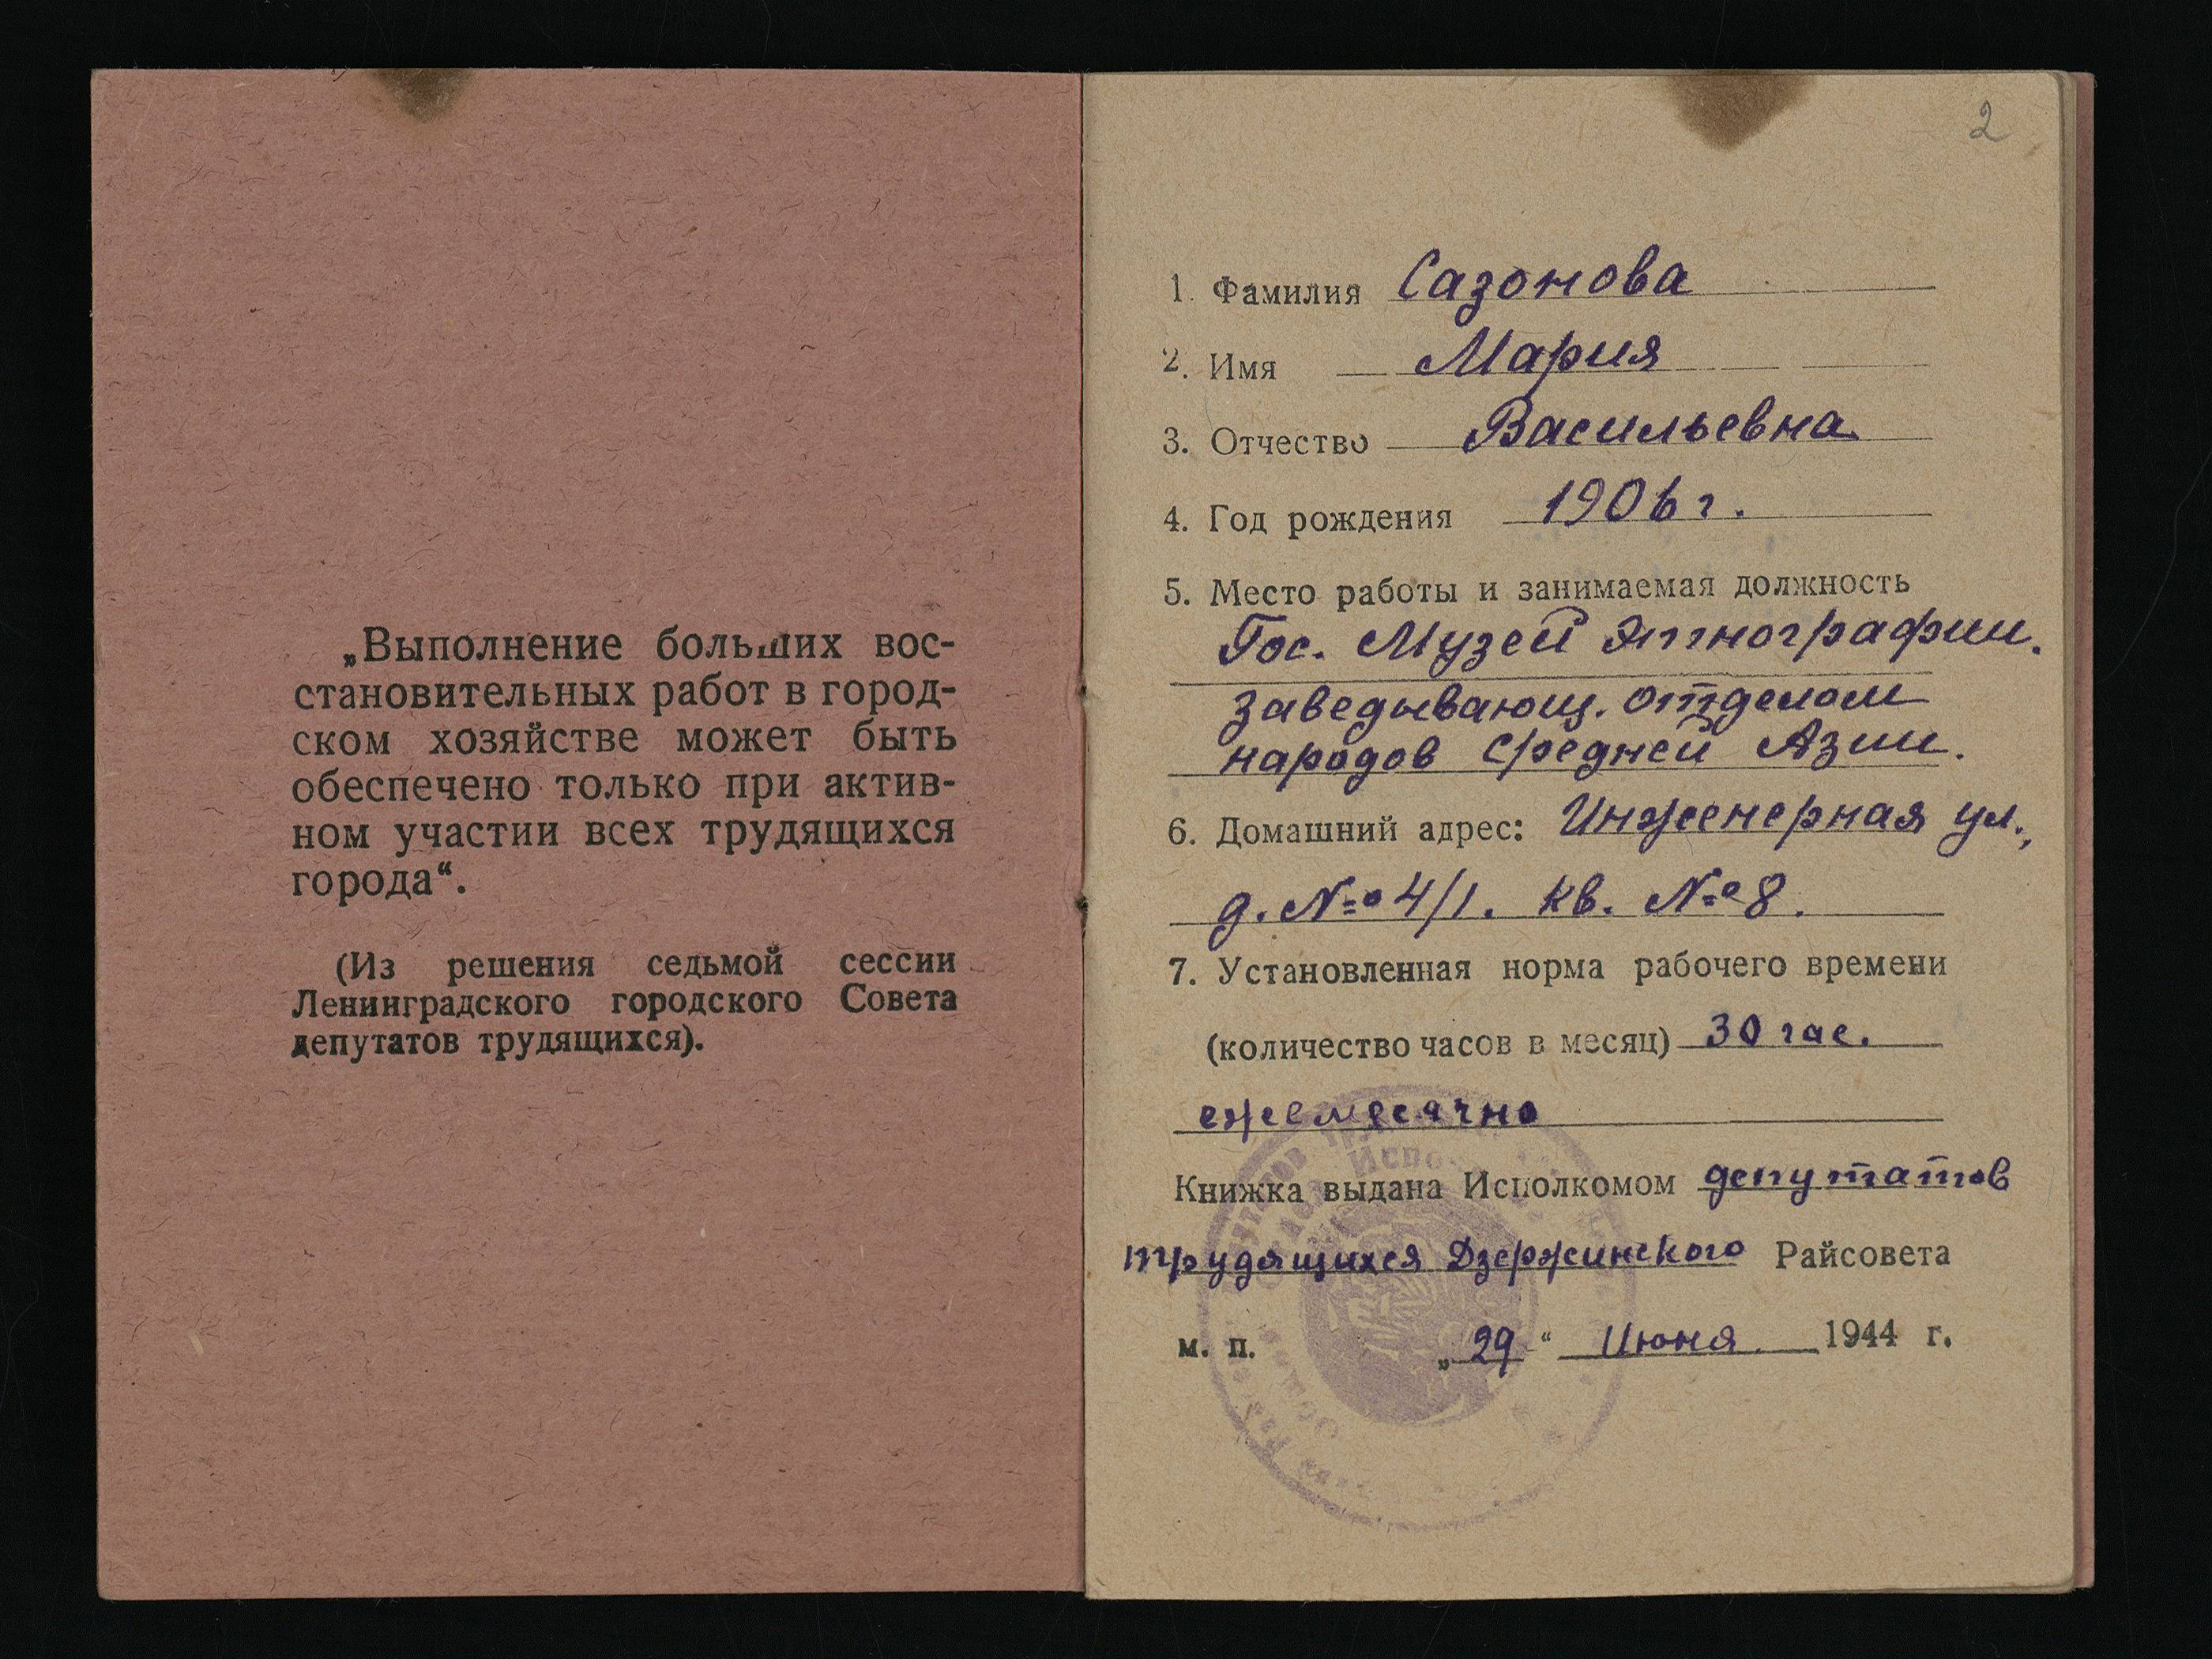 „Выполнение больших вос-
становительных работ в город-
ском хозяйстве может быть
обеспечено только при актив-
ном участии всех трудящихся
города“.
(Из решения седьмой сессии
Ленинградского городского Совета
депутатов трудящихся).
2
1. Фамилия Сазонова
2. Имя Мария
3. Отчество Васильевна
4. Год рождения 1906 г.
5. Место работы и занимаемая должность
Гос. Музей Этнографии.
заведывающ. отделом
народов Средней Азии.
6. Домашний адрес: Инженерная ул.,
д. № 4/1. кв. № 8.
7. Установленная норма рабочего времени
(количество часов в месяц) 30 час.
ежемесячно
Книжка выдана Исполкомом депутатов
трудящихся Дзержинского Райсовета
м. п. „29“ Июня 1944 г.